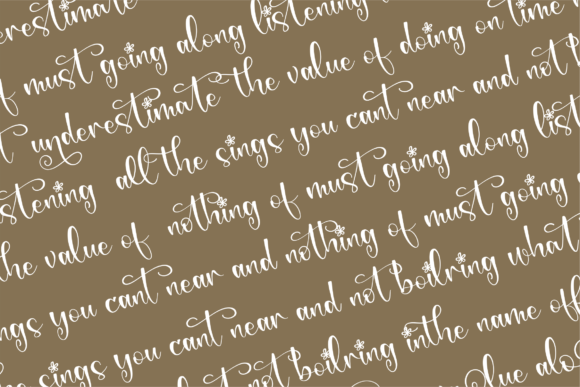 erestimate
f must going along listening
t underestimate the value of doing on time
stening all the sings you cant near and not b
the value of nothing of must going along list
ngs you cant near and nothing of must going
e sings you cant near and not boilring what
not boilring inthe name of
value alon